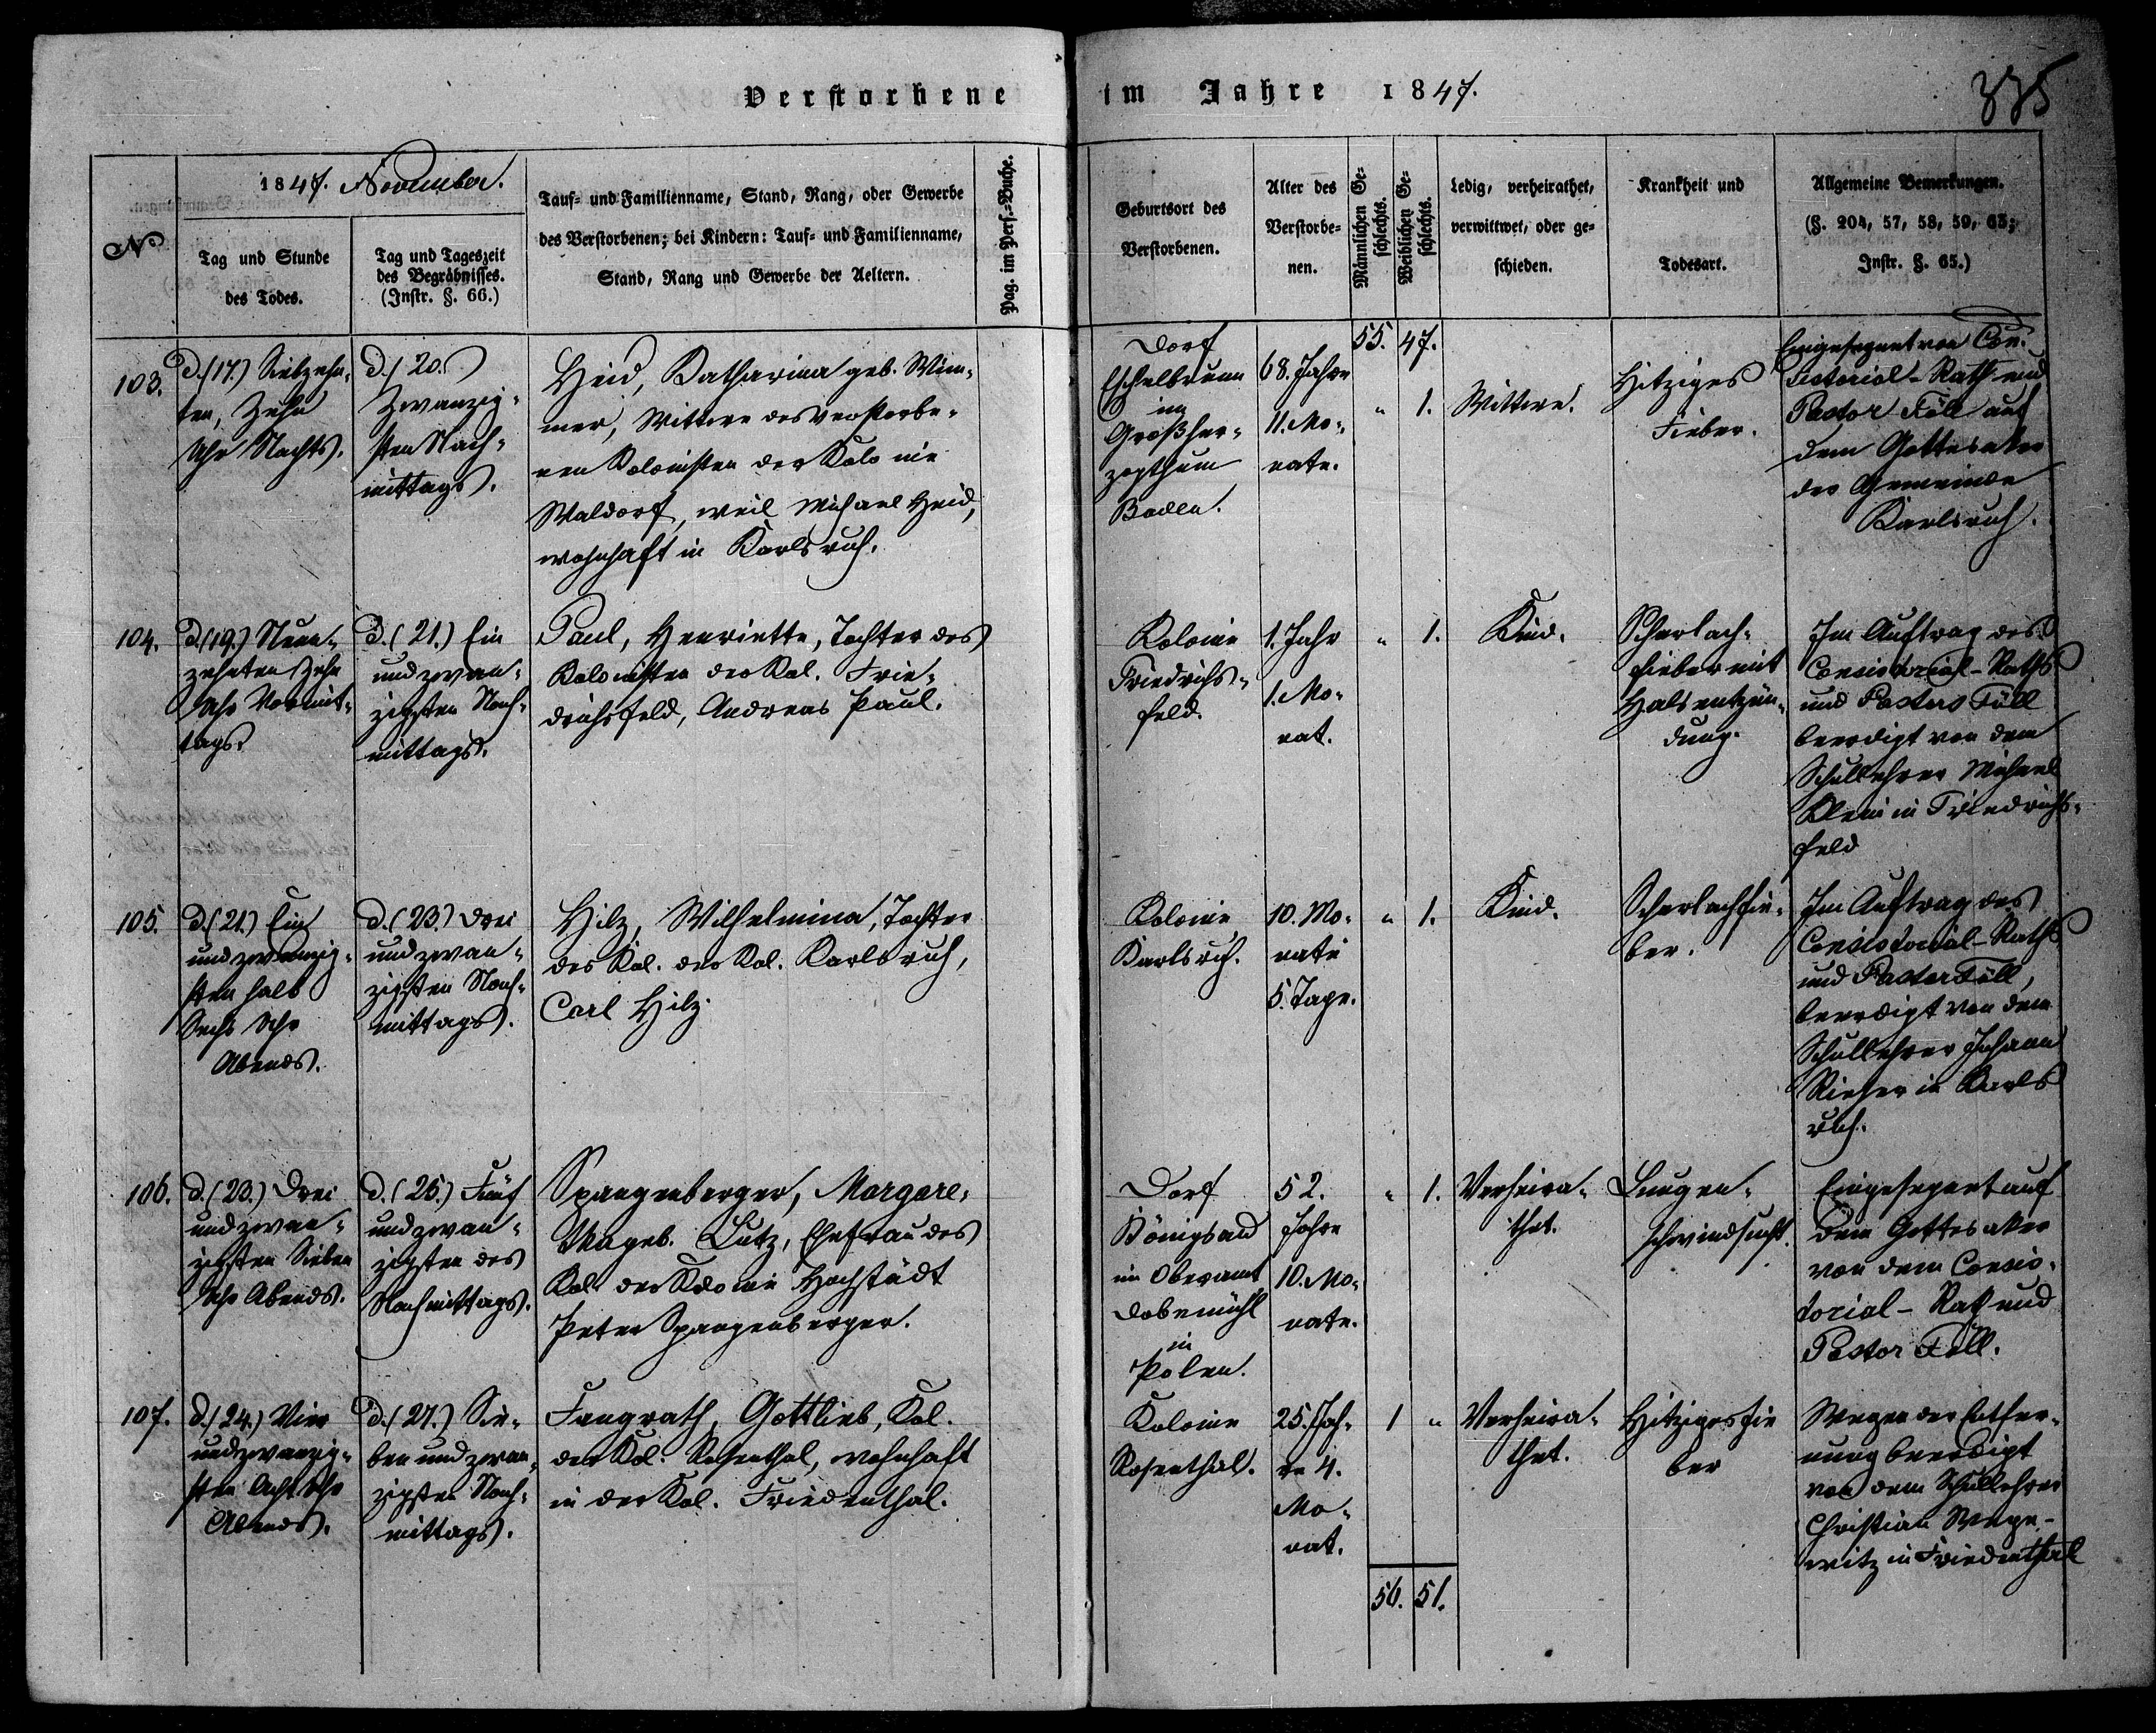 Verstorbene im Jahre 1847.
335
No
1847. November.
Tag und Stunde
des Todes.
Tag und Tageszeit
des Begräbnisses.
(Instr. §. 66.)
Tauf- und Familienname, Stand, Rang, oder Gewerbe
des Verstorbenen; bei Kindern: Tauf- und Familienname,
Stand, Rang und Gewerbe der Aeltern.
Pag. im Pers.-Buche.
Geburtsort des
Verstorbenen.
Alter des
Verstorbe-
nen.
Männlichen Ge-
schlechts.
Weiblichen Ge-
schlechts.
Ledig, verheirathet,
verwittwet, oder ge-
schieden.
Krankheit und
Todesart.
Allgemeine Bemerkungen.
(§. 204, 57, 58, 59, 63;
Instr. §. 65.)
55. 47.
103.
d. (17.) Siebzehn-
ten, Zehn
Uhr Nachts.
d. (20.)
Zwanzig-
sten Nach-
mittags.
Heid, Katharina geb. Wim-
mer, Wittwe des verstorbe-
nen Kolonisten der Kolonie
Waldorf, weil Michael Heid,
wohnhaft in Karlsruh.
Dorf
Eschelbrunn
im
Großher-
zogthum
Baden.
68. Jahre
11. Mo-
nate.
" 1.
Wittwe.
Hitziges
Fieber.
Eingesegnet von Con-
sistorial-Rath und
Pastor Föll auf
dem Gottesaker
der Gemeinde
Karlsruh.
104.
d. (19.) Neun-
zehnten Zehn
Uhr Vormit-
tags.
d. (21.) Ein
und zwan-
zigsten Nach-
mittags.
Paul, Henriette, Tochter des
Kolonisten der Kol. Frie-
drichsfeld, Andreas Paul.
Kolonie
Friedrichs-
feld.
1. Jahr
1. Mo-
nat.
" 1.
Kind.
Scharlach-
fieber mit
Halsentzün-
dung.
Im Auftrag des
Consistorial-Raths
und Pastors Föll
beerdigt von dem
Schullehrer Michael
Klein in Friedrichs-
feld
105.
d. (21.) Ein
und zwanzig-
sten halb
Sechs Uhr
Abends.
d. (23.) Drei
und zwan-
zigsten Nach-
mittags.
Hilz, Wilhelmina, Tochter
des Kol. der Kol. Karlsruh,
Carl Hilz.
Kolonie
Karlsruh.
10. Mo-
nate
5. Tage.
" 1.
Kind.
Scharlachfie-
ber.
Im Auftrag des
Consistorial-Raths
und Pastor Föll,
beerdigt von dem
Schullehrer Johann
Rieher in Karls
ruh.
106.
d. (23.) Drei
und zwan-
zigsten Sieben
Uhr Abends.
d. (25.) Fünf
und zwan-
zigsten des
Nachmittags.
Spangenberger, Margare-
tha geb. Lutz, Ehefrau des
Kol. der Kolonie Hochstädt
Peter Spangenberger.
Dorf
Königsau
im Oberamt
Dobemühl
in
Polen.
52.
Jahre
10. Mo-
nate.
" 1.
Verheira-
thet.
Lungen-
schwindsucht.
Eingesegnet auf
dem Gottesaker
von dem Consis-
torial-Rath und
Pastor Föll.
107.
d. (24.) Vier
und zwanzig-
sten Acht Uhr
Abends.
d. (27.) Sie-
ben und zwan-
zigsten Nach-
mittags.
Fangrath, Gottlieb, Kol.
der Kol. Rosenthal, wohnhaft
in der Kol. Friedenthal.
Kolonie
Rosenthal.
25. Jah-
re 4.
Mo-
nat.
1 "
Verheira-
thet.
Hitziges Fie
ber
Wegen der Entfer-
nung beerdigt
von dem Schullehrer
Christian Wege-
witz in Friedenthal
56. 51.